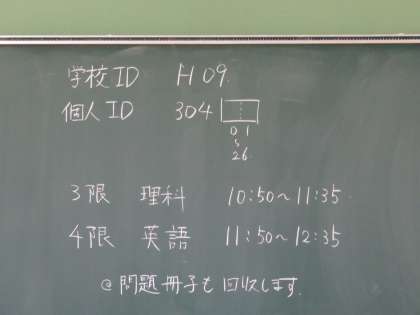 学校ID H09.
個人ID 304
01
〜
26
3限 理科 10:50〜11:35
4限 英語 11:50〜12:35
@問題冊子も回収します.